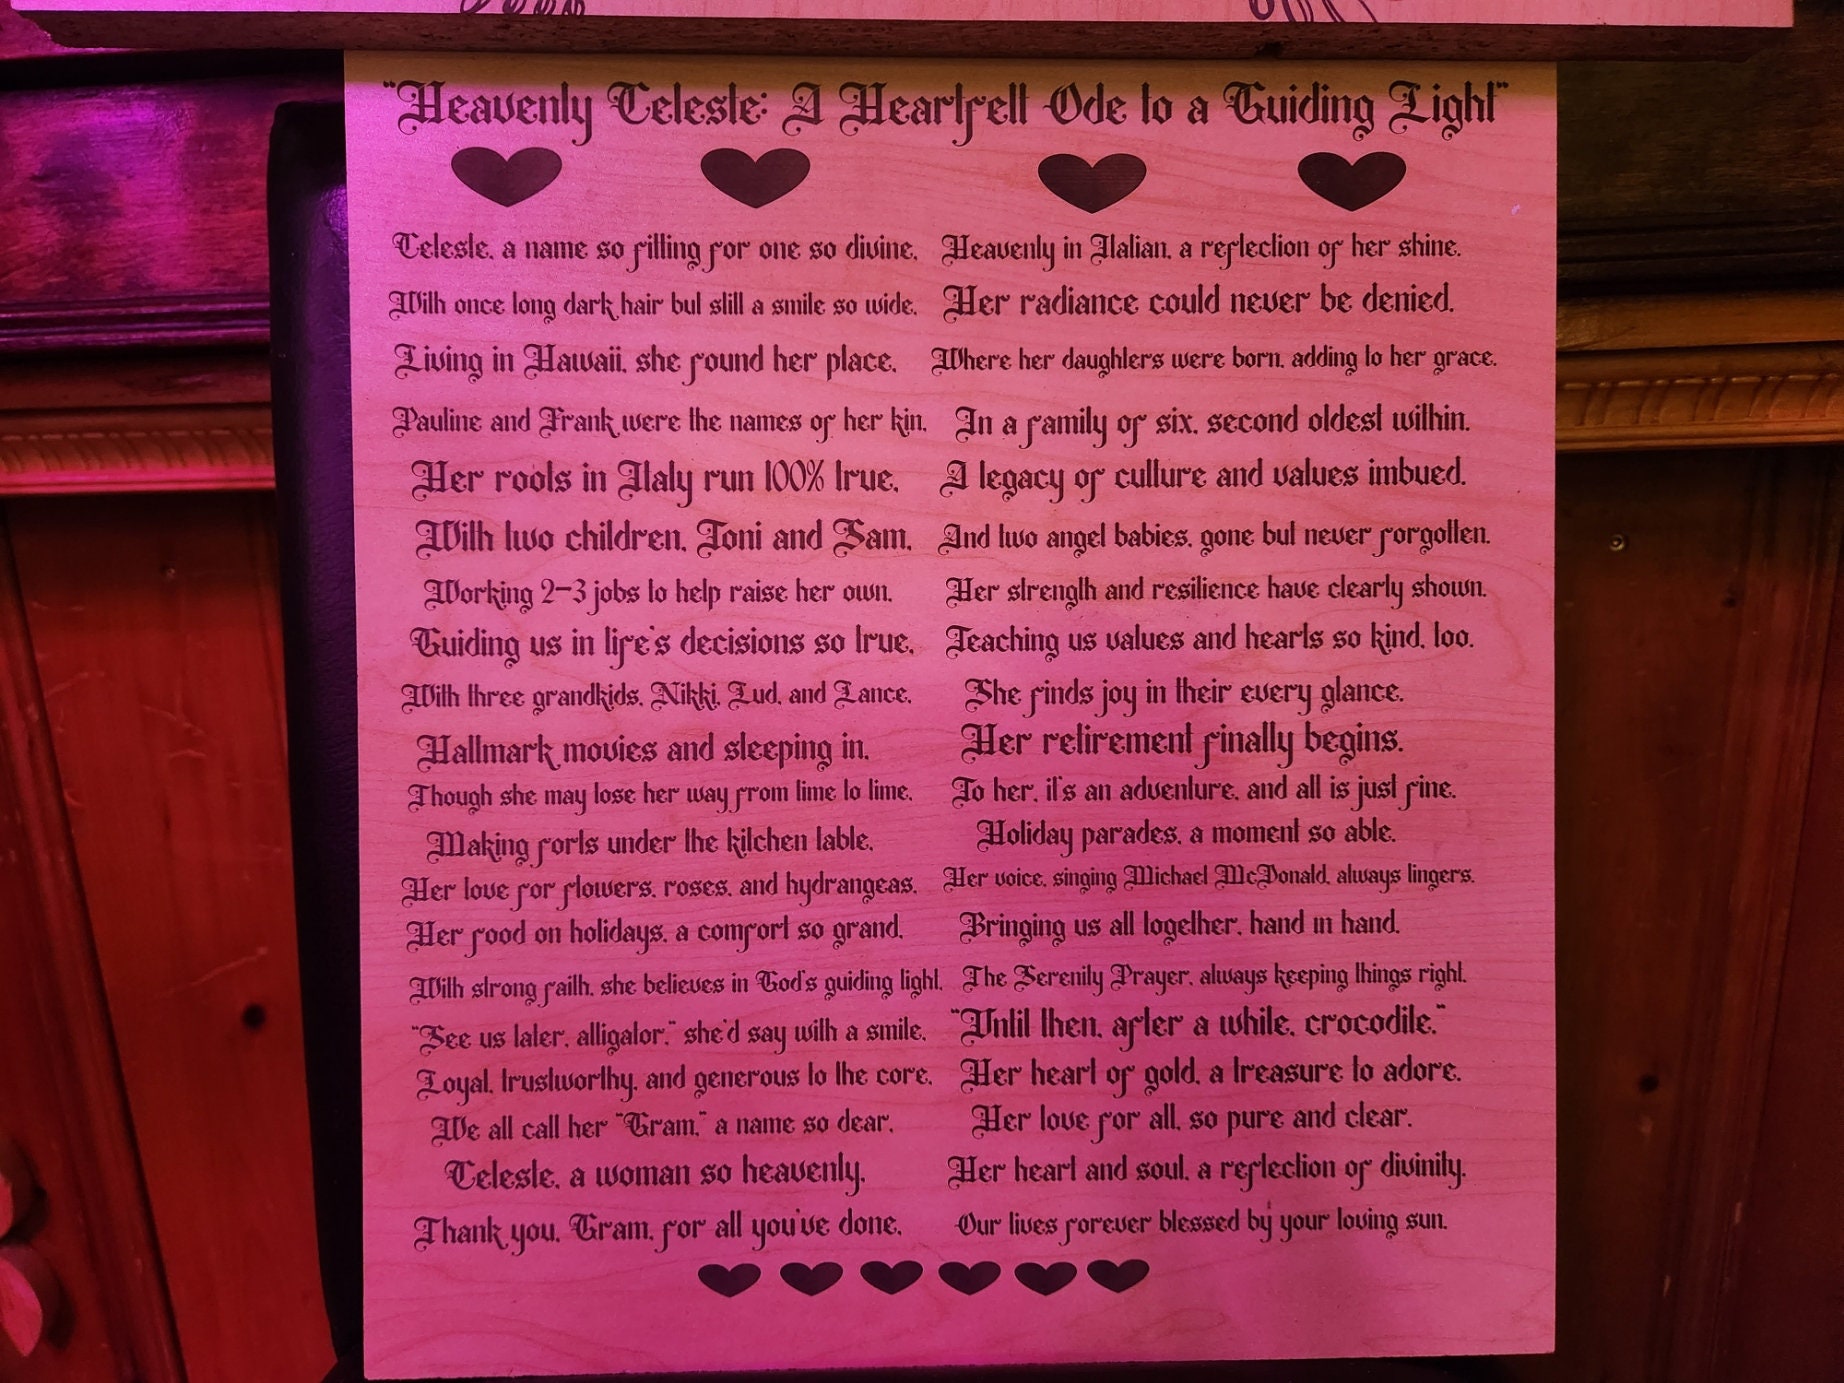 "Heavenly Celeste: A Heartfelt Ode to a Guiding Light"
Celeste, a name so fitting for one so divine, Heavenly in Italian, a reflection of her shine.
With once long dark hair but still a smile so wide, Her radiance could never be denied.
Living in Hawaii, she found her place, Where her daughters were born, adding to her grace.
Pauline and Frank were the names of her kin, In a family of six, second oldest within.
Her roots in Italy run 100% true, A legacy of culture and values imbued.
With two children, Toni and Sam, And two angel babies, gone but never forgotten.
Working 2-3 jobs to help raise her own, Her strength and resilience have clearly shown.
Guiding us in life's decisions so true, Teaching us values and hearts so kind, too.
With three grandkids, Nikki, Lud, and Lance, She finds joy in their every glance.
Hallmark movies and sleeping in, Her retirement finally begins.
Though she may lose her way from time to time, To her, it's an adventure, and all is just fine.
Making forts under the kitchen table, Holiday parades, a moment so able.
Her love for flowers, roses, and hydrangeas, Her voice, singing Michael McDonald, always lingers.
Her food on holidays, a comfort so grand, Bringing us all together, hand in hand.
With strong faith, she believes in God's guiding light, The Serenity Prayer, always keeping things right.
"See us later, alligator," she'd say with a smile, "Until then, after a while, crocodile."
Loyal, trustworthy, and generous to the core, Her heart of gold, a treasure to adore.
We all call her "Gram," a name so dear, Her love for all, so pure and clear.
Celeste, a woman so heavenly, Her heart and soul, a reflection of divinity.
Thank you, Gram, for all you've done, Our lives forever blessed by your loving sun.